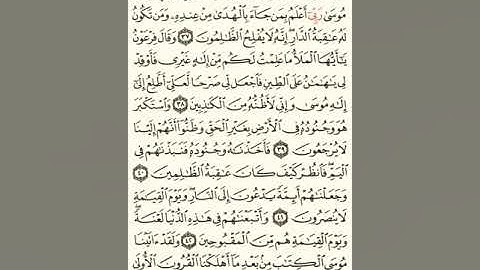 مُوسَىٰ رَبِّىٓ أَعْلَمُ بِمَن جَآءَ بِٱلْهُدَىٰ مِنْ عِندِهِۦ وَمَن تَكُونُ
لَهُۥ عَٰقِبَةُ ٱلدَّارِۖ إِنَّهُۥ لَا يُفْلِحُ ٱلظَّٰلِمُونَ ٣٧ وَقَالَ فِرْعَوْنُ
يَٰٓأَيُّهَا ٱلْمَلَأُ مَا عَلِمْتُ لَكُم مِّنْ إِلَٰهٍ غَيْرِى فَأَوْقِدْ
لِى يَٰهَٰمَٰنُ عَلَى ٱلطِّينِ فَٱجْعَل لِّى صَرْحًا لَّعَلِّىٓ أَطَّلِعُ إِلَىٰٓ
إِلَٰهِ مُوسَىٰ وَإِنِّى لَأَظُنُّهُۥ مِنَ ٱلْكَٰذِبِينَ ٣٨ وَٱسْتَكْبَرَ
هُوَ وَجُنُودُهُۥ فِى ٱلْأَرْضِ بِغَيْرِ ٱلْحَقِّ وَظَنُّوٓا۟ أَنَّهُمْ إِلَيْنَا
لَا يُرْجَعُونَ ٣٩ فَأَخَذْنَٰهُ وَجُنُودَهُۥ فَنَبَذْنَٰهُمْ فِى
ٱلْيَمِّۖ فَٱنظُرْ كَيْفَ كَانَ عَٰقِبَةُ ٱلظَّٰلِمِينَ ٤٠
وَجَعَلْنَٰهُمْ أَئِمَّةً يَدْعُونَ إِلَى ٱلنَّارِۖ وَيَوْمَ ٱلْقِيَٰمَةِ
لَا يُنصَرُونَ ٤١ وَأَتْبَعْنَٰهُمْ فِى هَٰذِهِ ٱلدُّنْيَا لَعْنَةًۖ
وَيَوْمَ ٱلْقِيَٰمَةِ هُم مِّنَ ٱلْمَقْبُوحِينَ ٤٢ وَلَقَدْ ءَاتَيْنَا
مُوسَى ٱلْكِتَٰبَ مِنۢ بَعْدِ مَآ أَهْلَكْنَا ٱلْقُرُونَ ٱلْأُولَىٰ